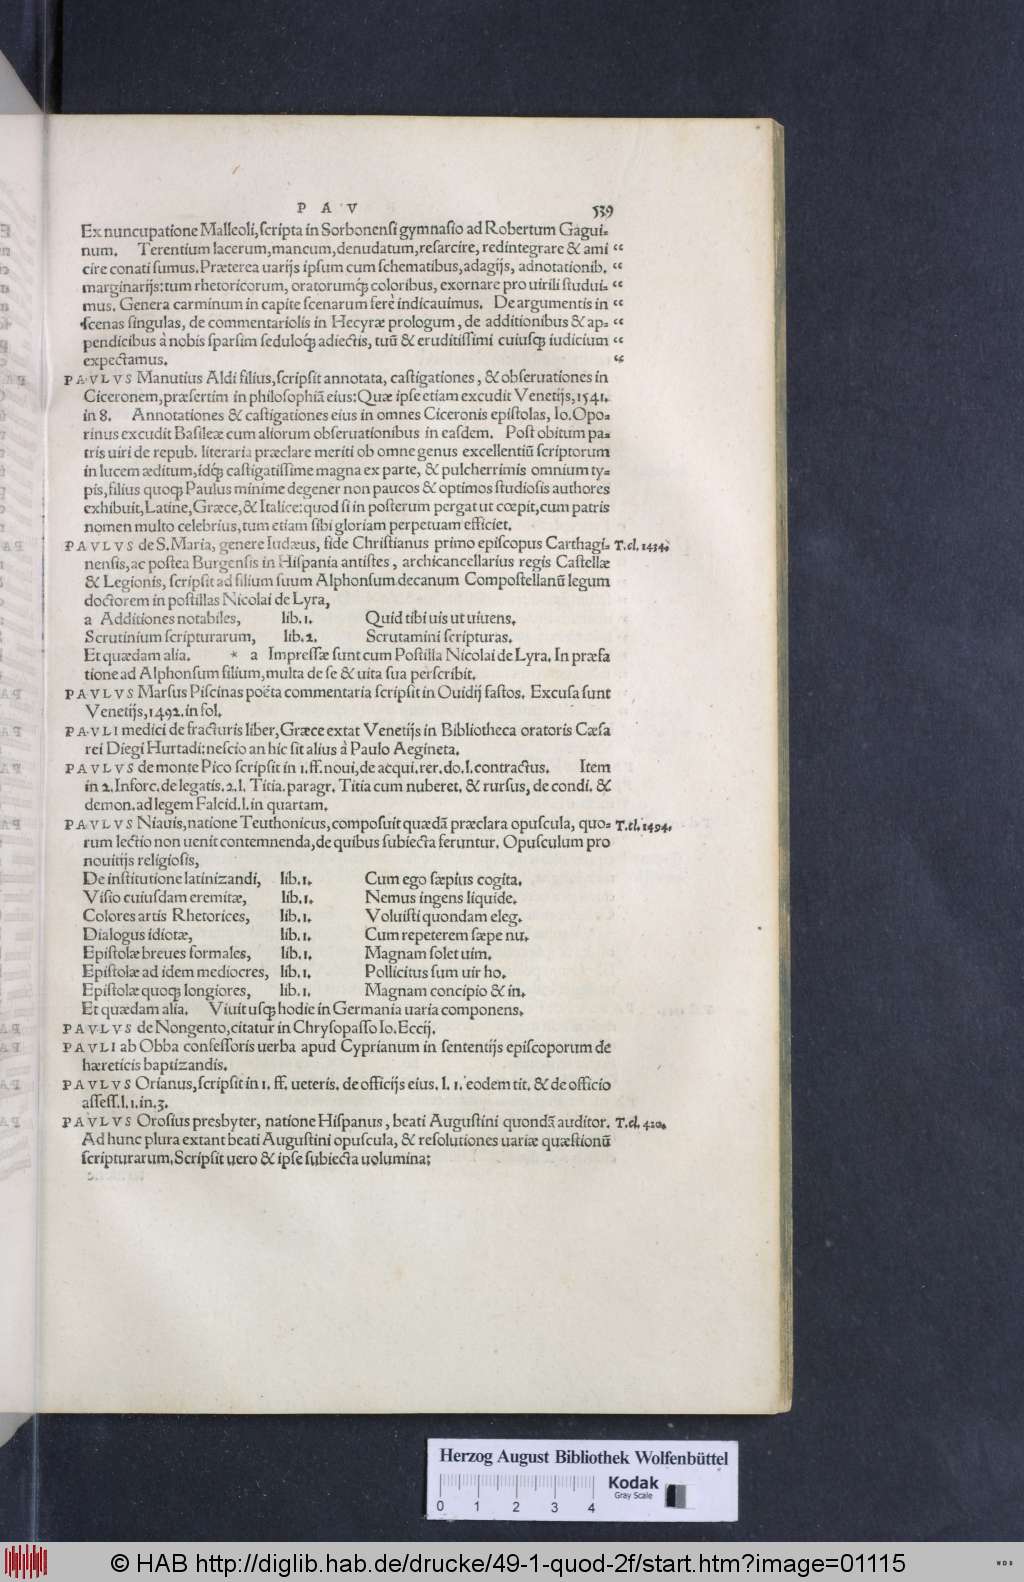 P A V 539
Ex nuncupatione Malleoli, scripta in Sorbonensi gymnasio ad Robertum Gagui-
num. Terentium lacerum, mancum, denudatum, resarcire, redintegrare & ami “
cire conati sumus. Præterea uarijs ipsum cum schematibus, adagijs, adnotationib. “
marginarijs: tum rhetoricorum, oratorumq́; coloribus, exornare pro uirili studui- “
mus. Genera carminum in capite scenarum ferè indicauimus. De argumentis in “
scenas singulas, de commentariolis in Hecyræ prologum, de additionibus & ap- “
pendicibus à nobis sparsim seduloq́; adiectis, tuũ & eruditissimi cuiusq́; iudicium “
expectamus. “
PAVLVS Manutius Aldi filius, scripsit annotata, castigationes, & obseruationes in
Ciceronem, præsertim in philosophiã eius: Quæ ipse etiam excudit Venetijs, 1541.
in 8. Annotationes & castigationes eius in omnes Ciceronis epistolas, Io. Opo-
rinus excudit Basileæ cum aliorum obseruationibus in easdem. Post obitum pa-
tris uiri de repub. literaria præclare meriti ob omne genus excellentiũ scriptorum
in lucem æditum, idq́; castigatissime magna ex parte, & pulcherrimis omnium ty-
pis, filius quoq; Paulus minime degener non paucos & optimos studiosis authores
exhibuit, Latine, Græce, & Italice: quod si in posterum pergat ut cœpit, cum patris
nomen multo celebrius, tum etiam sibi gloriam perpetuam efficiet.
PAVLVS de S. Maria, genere Iudæus, fide Christianus primo episcopus Carthagi- T.cl. 1434.
nensis, ac postea Burgensis in Hispania antistes, archicancellarius regis Castellæ
& Legionis, scripsit ad filium suum Alphonsum decanum Compostellanũ legum
doctorem in postillas Nicolai de Lyra,
a Additiones notabiles, lib. 1. Quid tibi uis ut uiuens.
Scrutinium scripturarum, lib. 2. Scrutamini scripturas.
Et quædam alia. * a Impressæ sunt cum Postilla Nicolai de Lyra. In præfa
tione ad Alphonsum filium, multa de se & uita sua perscribit.
PAVLVS Marsus Piscinas poëta commentaria scripsit in Ouidij fastos. Excusa sunt
Venetijs, 1492. in fol.
PAVLI medici de fracturis liber, Græce extat Venetijs in Bibliotheca oratoris Cæsa
rei Diegi Hurtadi: nescio an hic sit alius à Paulo Aegineta.
PAVLVS de monte Pico scripsit in 1. ff. noui, de acqui. rer. do. l. contractus. Item
in 2. Inforc. de legatis. 2. l. Titia. paragr. Titia cum nuberet. & rursus, de condi. &
demon. ad legem Falcid. l. in quartam.
PAVLVS Niauis, natione Teuthonicus, composuit quædã præclara opuscula, quo- T.cl. 1494.
rum lectio non uenit contemnenda, de quibus subiecta feruntur. Opusculum pro
nouitijs religiosis,
De institutione latinizandi, lib. 1. Cum ego sæpius cogita.
Visio cuiusdam eremitæ, lib. 1. Nemus ingens liquide.
Colores artis Rhetorices, lib. 1. Voluisti quondam eleg.
Dialogus idiotæ, lib. 1. Cum repeterem sæpe nu.
Epistolæ breues formales, lib. 1. Magnam solet uim.
Epistolæ ad idem mediocres, lib. 1. Pollicitus sum uir ho.
Epistolæ quoq; longiores, lib. 1. Magnam concipio & in.
Et quædam alia. Viuit usq; hodie in Germania uaria componens.
PAVLVS de Nongento, citatur in Chrysopasso Io. Eccij.
PAVLI ab Obba confessoris uerba apud Cyprianum in sententijs episcoporum de
hæreticis baptizandis.
PAVLVS Orianus, scripsit in 1. ff. ueteris. de officijs eius. l. 1. eodem tit. & de officio
assess. l. 1. in. 3.
PAVLVS Orosius presbyter, natione Hispanus, beati Augustini quondã auditor. T.cl. 420.
Ad hunc plura extant beati Augustini opuscula, & resolutiones uariæ quæstionũ
scripturarum. Scripsit uero & ipse subiecta uolumina;
Herzog August Bibliothek Wolfenbüttel
0 1 2 3 4
Kodak
Gray Scale
© HAB http://diglib.hab.de/drucke/49-1-quod-2f/start.htm?image=01115
WDB